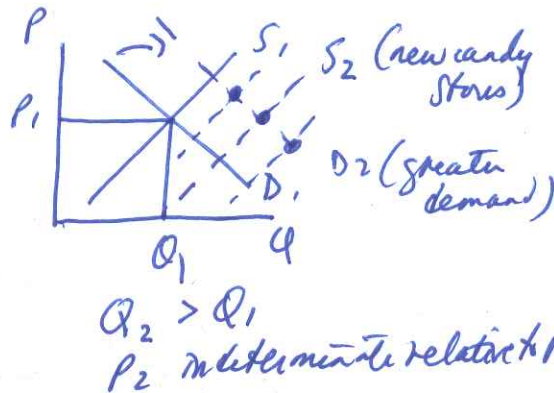 P
S₁
S₂ (new candy
stores)
P₁
D₁
D₂ (greater
demand)
Q₁
Q
Q₂ > Q₁
P₂ indeterminate relative to P